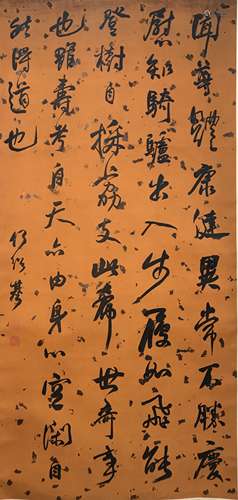 聞尊體康健異常不勝慶
慰知騎驢出入步履如飛能
登樹自採荔支此希世奇事
也雖壽考自天亦由身心空闊自
然得道也